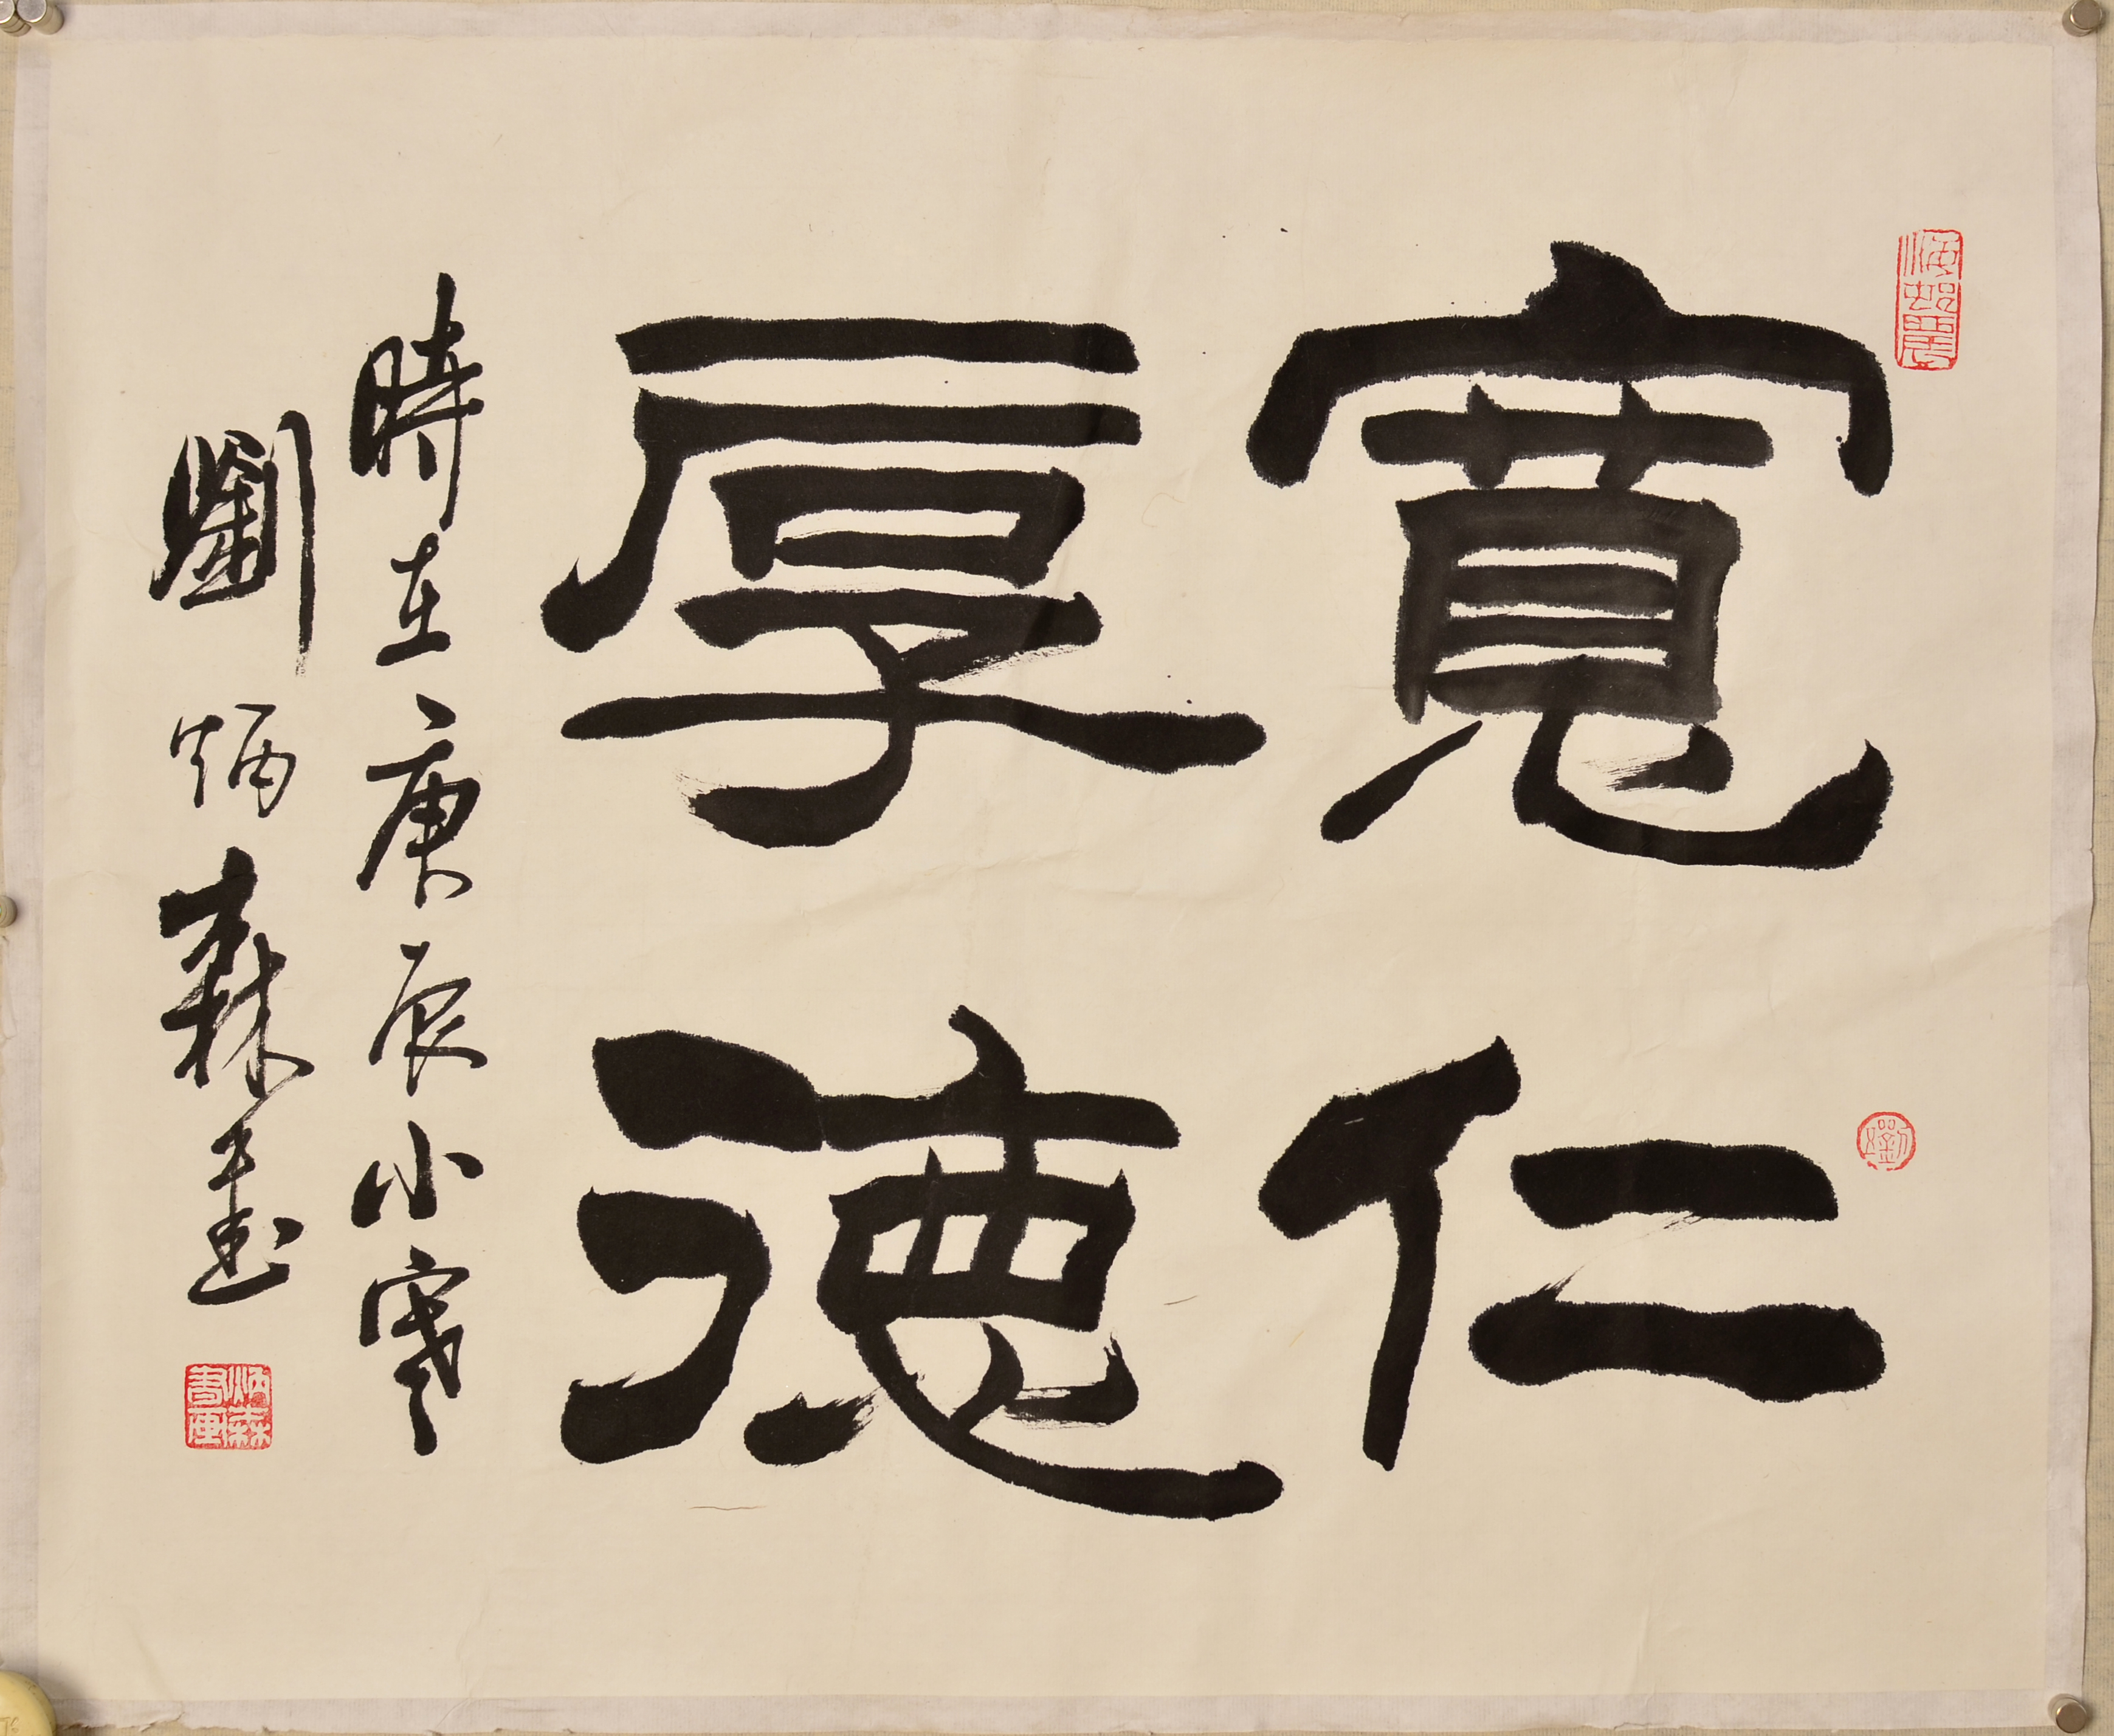 寬仁
厚德
時在庚辰小寒
劉炳森並書
劉
炳森
書画